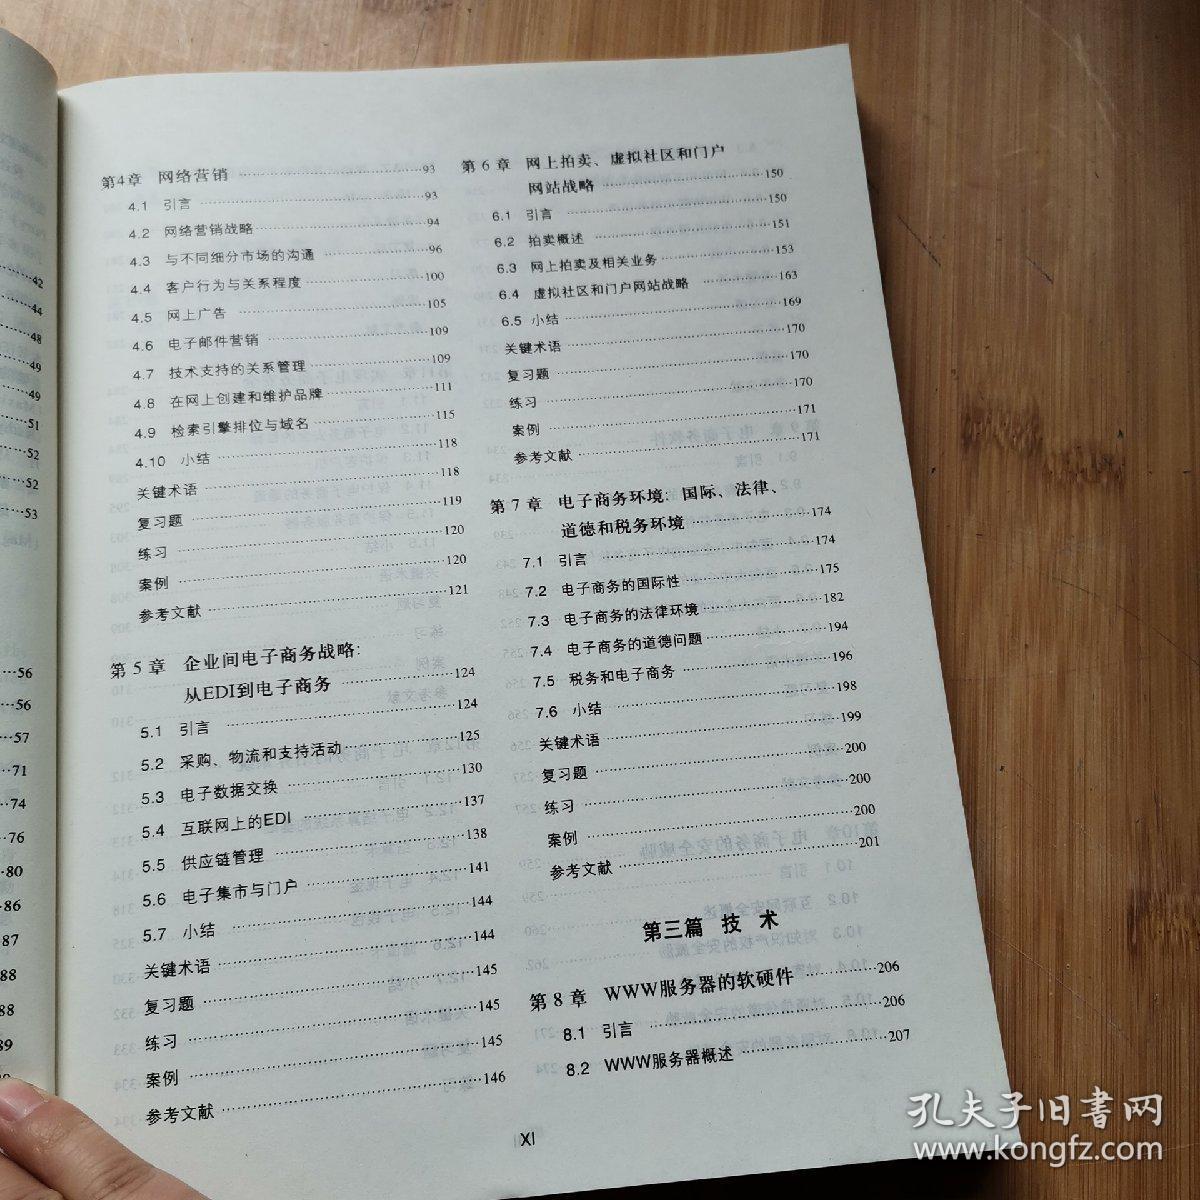 42
44
48
49
49
51
52
52
53
56
56
57
71
74
76
80
86
87
88
88
89
第4章 网络营销 ………… 93
4.1 引言 ………… 93
4.2 网络营销战略 ………… 94
4.3 与不同细分市场的沟通 ………… 96
4.4 客户行为与关系程度 ………… 100
4.5 网上广告 ………… 105
4.6 电子邮件营销 ………… 109
4.7 技术支持的关系管理 ………… 109
4.8 在网上创建和维护品牌 ………… 111
4.9 检索引擎排位与域名 ………… 115
4.10 小结 ………… 118
关键术语 ………… 118
复习题 ………… 119
练习 ………… 120
案例 ………… 120
参考文献 ………… 121
第5章 企业间电子商务战略：
从EDI到电子商务 ………… 124
5.1 引言 ………… 124
5.2 采购、物流和支持活动 ………… 125
5.3 电子数据交换 ………… 130
5.4 互联网上的EDI ………… 137
5.5 供应链管理 ………… 138
5.6 电子集市与门户 ………… 141
5.7 小结 ………… 144
关键术语 ………… 144
复习题 ………… 145
练习 ………… 145
案例 ………… 145
参考文献 ………… 146
第6章 网上拍卖、虚拟社区和门户
网站战略 ………… 150
6.1 引言 ………… 150
6.2 拍卖概述 ………… 151
6.3 网上拍卖及相关业务 ………… 153
6.4 虚拟社区和门户网站战略 ………… 163
6.5 小结 ………… 169
关键术语 ………… 170
复习题 ………… 170
练习 ………… 170
案例 ………… 171
参考文献 ………… 171
第7章 电子商务环境：国际、法律、
道德和税务环境 ………… 174
7.1 引言 ………… 174
7.2 电子商务的国际性 ………… 175
7.3 电子商务的法律环境 ………… 182
7.4 电子商务的道德问题 ………… 194
7.5 税务和电子商务 ………… 196
7.6 小结 ………… 198
关键术语 ………… 199
复习题 ………… 200
练习 ………… 200
案例 ………… 200
参考文献 ………… 201
第三篇 技 术
第8章 WWW服务器的软硬件 ………… 206
8.1 引言 ………… 206
8.2 WWW服务器概述 ………… 207
XI
孔夫子旧书网
www.kongfz.com